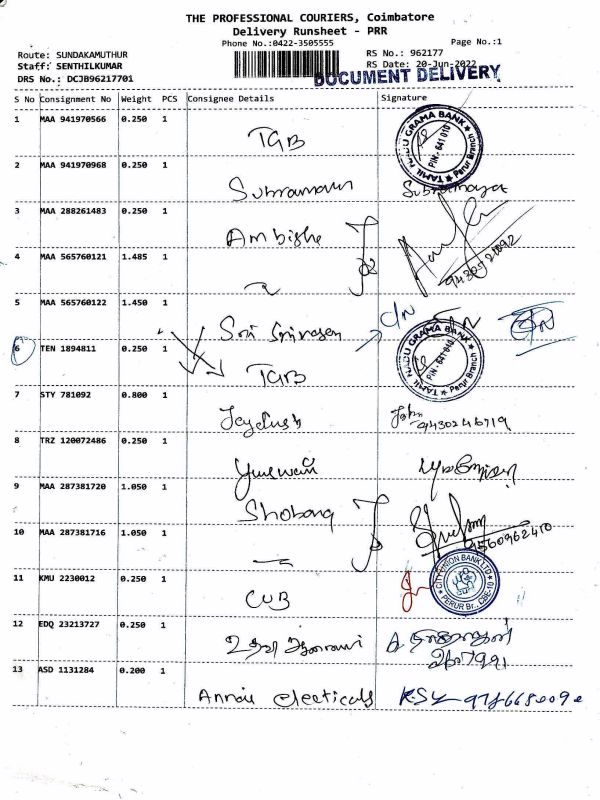 THE PROFESSIONAL COURIERS, Coimbatore
Delivery Runsheet - PRR
Phone No.:0422-3505555 Page No.:1
Route: SUNDAKAMUTHUR RS No.: 962177
Staff: SENTHILKUMAR RS Date: 20-Jun-2022
DRS No.: DCJB96217701 DOCUMENT DELIVERY
S No Consignment No Weight PCS Consignee Details Signature
1 MAA 941970566 0.250 1 TGB TAMIL NADU GRAMA BANK PIN-641 010 Perur Branch
2 MAA 941970968 0.250 1 Subramani
3 MAA 288261483 0.250 1 Ambighe
4 MAA 565760121 1.485 1
5 MAA 565760122 1.450 1 Sri Srinivasan C/N
6 TEN 1894811 0.250 1 TGB TAMIL NADU GRAMA BANK PIN-641 010 Perur Branch
7 STY 781092 0.800 1 John
8 TRZ 120072486 0.250 1
9 MAA 287381720 1.050 1 Shobana
10 MAA 287381716 1.050 1 9560962410
11 KMU 2230012 0.250 1 CUB CITY UNION BANK LTD PERUR Br., CBE-10
12 EDQ 23213727 0.250 1
13 ASD 1131284 0.200 1 Annai electicals